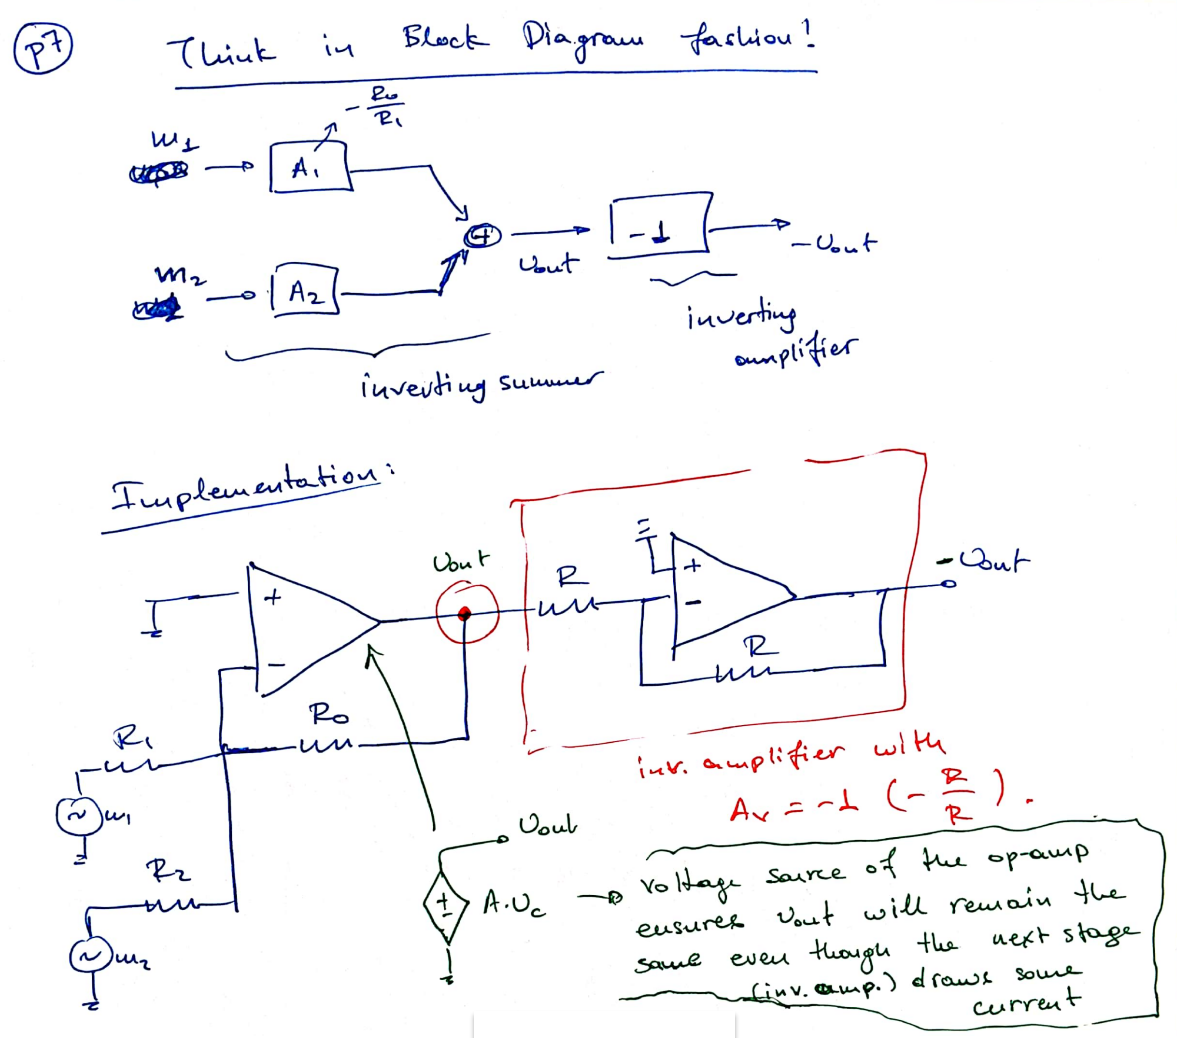 p7
Think in Block Diagram fashion!
- R0/R1
m1
A1
+
-1
Vout
-Vout
m2
A2
inverting amplifier
inverting summer
Implementation:
Vout
+
-
R
+
-
R
-Vout
R0
R1
m1
R2
m2
inv. amplifier with
Av = -1 (- R/R).
Vout
+
-
A.Vc
voltage source of the op-amp
ensures Vout will remain the
same even though the next stage
(inv. amp.) draws some
current